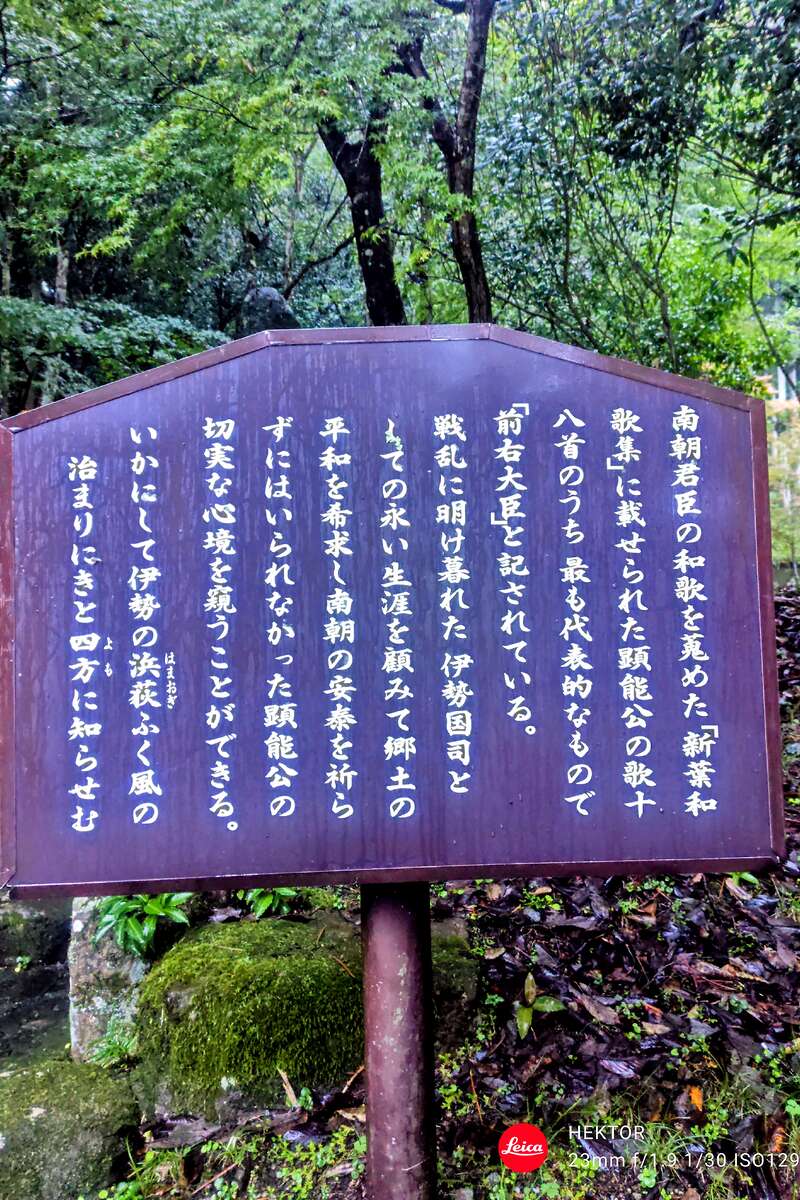 南朝君臣の和歌を蒐めた『新葉和
歌集』に載せられた顕能公の歌十
八首のうち最も代表的なもので
「前右大臣」と記されている。
戦乱に明け暮れた伊勢国司と
しての永い生涯を顧みて郷土の
平和を希求し南朝の安泰を祈ら
ずにはいられなかった顕能公の
切実な心境を窺うことができる。
いかにして伊勢の浜荻ふく風の
はまおぎ
治まりにきと四方に知らせむ
よも
Leica
HEKTOR
23mm f/1.9 1/30 ISO129